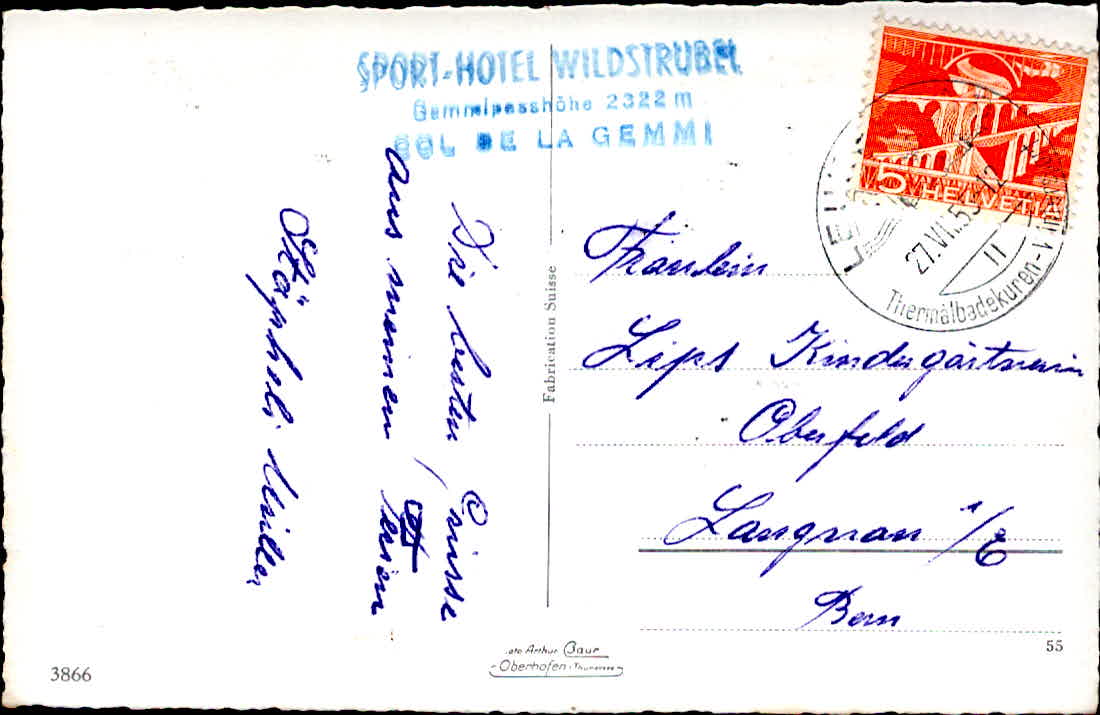 SPORT-HOTEL WILDSTRUBEL
Gemmipasshöhe 2322 m
COL DE LA GEMMI
5 HELVETIA
27.VII.53-12
Thermalbadekuren
Die besten Grüsse
aus meinen Ferien
Müller
Fräulein
Lips Kindergärtnerin
Oberfeld
Langnau i/E
Bern
Fabrication Suisse
Arthur Baur
Oberhofen (Thunersee)
3866
55